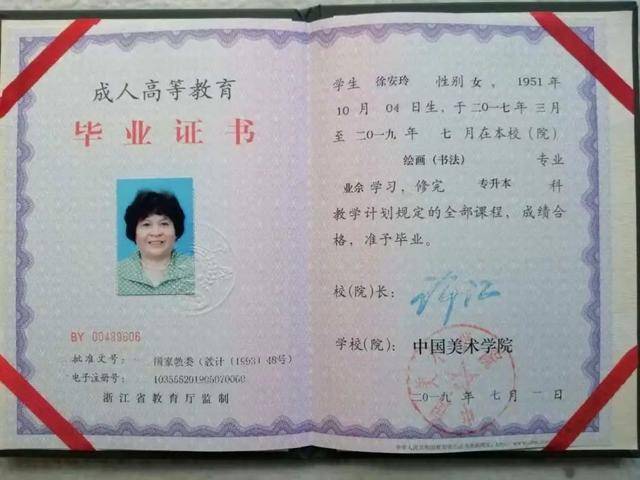 成人高等教育
毕业证书
BY 00489606
批准文号： 国家教委（教计（1993）48号）
电子注册号： 103555201905070060
浙江省教育厅监制
学生 徐安玲 性别 女，1951年
10月 04日生，于二〇一七年 三月
至 二〇一九年 七月在本校（院）
绘画（书法） 专业
业余 学习，修完 专升本 科
教学计划规定的全部课程，成绩合
格，准予毕业。
校（院）长： 许江
学校（院）： 中国美术学院
二〇一九年 七月 一日